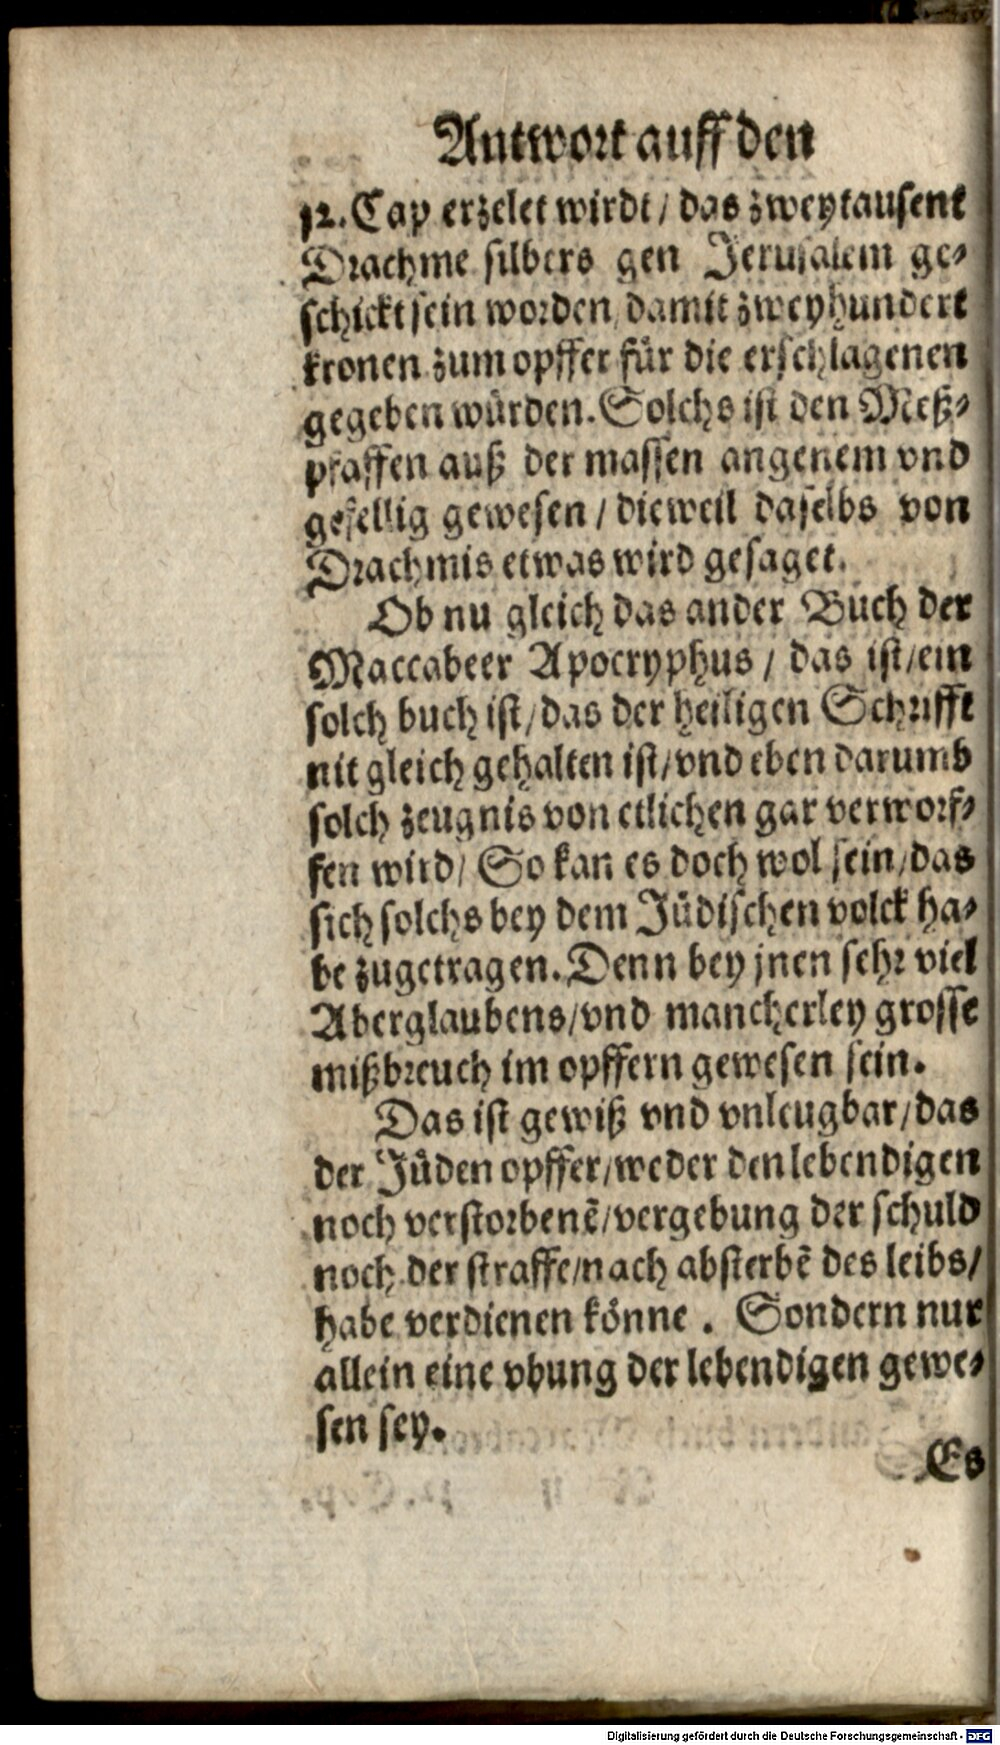 Antwort auff den
12. Cap erzelet wirdt / das zweytausent
Drachme silbers gen Jerusalem ge-
schickt sein worden / damit zweyhundert
kronen zum opffer für die erschlagenen
gegeben würden. Solchs ist den Meß-
pfaffen auß der massen angenem vnd
gefellig gewesen / dieweil daselbs von
Drachmis etwas wird gesaget.
Ob nu gleich das ander Buch der
Maccabeer Apocryphus / das ist / ein
solch buch ist / das der heiligen Schrifft
nit gleich gehalten ist / vnd eben darumb
solch zeugnis von etlichen gar verworf-
fen wird / So kan es doch wol sein / das
sich solchs bey dem Jüdischen volck ha-
be zugetragen. Denn bey jnen sehr viel
Aberglaubens / vnd mancherley grosse
mißbreuch im opffern gewesen sein.
Das ist gewiß vnd vnleugbar / das
der Jüden opffer / weder den lebendigen
noch verstorbenẽ / vergebung der schuld
noch der straffe / nach absterbẽ des leibs /
habe verdienen könne . Sondern nur
allein eine vbung der lebendigen gewe-
sen sey.
Es
Digitalisierung gefördert durch die Deutsche Forschungsgemeinschaft - DFG